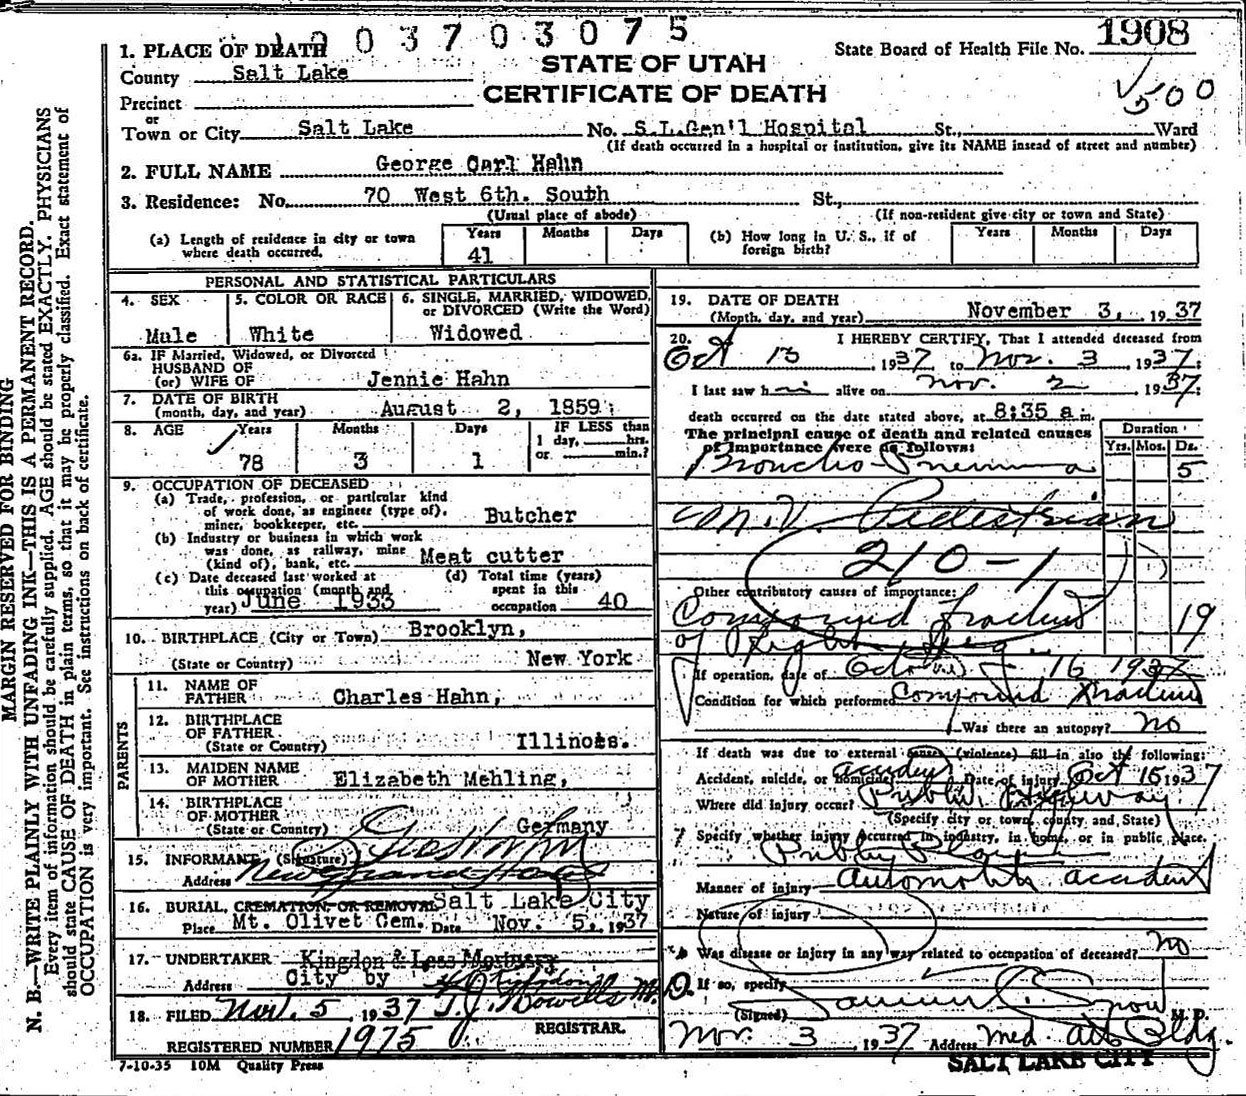 1003703075
1. PLACE OF DEATH
State Board of Health File No. 1908
STATE OF UTAH
County Salt Lake
CERTIFICATE OF DEATH
√500
Precinct
or
Town or City Salt Lake No. S.L.Gen'l Hospital St., Ward
(If death occurred in a hospital or institution, give its NAME insead of street and number)
2. FULL NAME George Carl Hahn
3. Residence: No. 70 West 6th. South St.,
(Usual place of abode) (If non-resident give city or town and State)
(a) Length of residence in city or town where death occurred. Years 41 Months Days
(b) How long in U. S., if of foreign birth? Years Months Days
PERSONAL AND STATISTICAL PARTICULARS
4. SEX Male
5. COLOR OR RACE White
6. SINGLE, MARRIED, WIDOWED, or DIVORCED (Write the Word) Widowed
6a. IF Married, Widowed, or Divorced
HUSBAND OF
(or) WIFE OF Jennie Hahn
7. DATE OF BIRTH
(month, day, and year) August 2, 1859
8. AGE Years 78 Months 3 Days 1
IF LESS than 1 day, hrs. or min.?
9. OCCUPATION OF DECEASED
(a) Trade, profession, or particular kind
of work done, as engineer (type of),
miner, bookkeeper, etc. Butcher
(b) Industry or business in which work
was done, as railway, mine
(kind of), bank, etc. Meat cutter
(c) Date deceased last worked at
this occupation (month and
year) June 1933
(d) Total time (years)
spent in this
occupation 40
10. BIRTHPLACE (City or Town) Brooklyn,
(State or Country) New York
PARENTS
11. NAME OF
FATHER Charles Hahn,
12. BIRTHPLACE
OF FATHER
(State or Country) Illinois.
13. MAIDEN NAME
OF MOTHER Elizabeth Mehling,
14. BIRTHPLACE
OF MOTHER
(State or Country) Germany
15. INFORMANT (Signature)
Address New Grand Hotel
16. BURIAL, CREMATION OR REMOVAL Salt Lake City
Place Mt. Olivet Cem. Date Nov. 5, 1937
17. UNDERTAKER Kingdon & Lees Mortuary
Address City by
18. FILED Nov. 5 1937 T.J. Howells M.D.
REGISTRAR.
REGISTERED NUMBER 1975
7-10-35 10M Quality Press
19. DATE OF DEATH
(Month, day, and year) November 3, 1937
20. I HEREBY CERTIFY, That I attended deceased from
Oct 13, 1937 to Nov. 3, 1937;
I last saw him alive on Nov. 2, 1937;
death occurred on the date stated above, at 8:35 a m.
The principal cause of death and related causes
of importance were as follows:
Duration
Yrs. Mos. Ds.
Broncho-Pneumonia 5
M.V. Pedestrian
210-1
Other contributory causes of importance:
Compound fracture 19
of Right leg
If operation, date of October 16 1937
Condition for which performed Compound fracture
Was there an autopsy? no
If death was due to external causes (violence) fill in also the following:
Accident, suicide, or homicide? accident Date of injury Oct 15 1937
Where did injury occur? Public Highway
(Specify city or town, county, and State)
Specify whether injury occurred in industry, in home, or in public place.
Public Place
Manner of injury automobile accident
Nature of injury
Was disease or injury in any way related to occupation of deceased? no
If so, specify
(Signed) Snow M. D.
Nov. 3 1937 Address Med. Arts Bldg.
SALT LAKE CITY
MARGIN RESERVED FOR BINDING
N. B.—WRITE PLAINLY WITH UNFADING INK—THIS IS A PERMANENT RECORD.
Every item of information should be carefully supplied. AGE should be stated EXACTLY. PHYSICIANS
should state CAUSE OF DEATH in plain terms, so that it may be properly classified. Exact statement of
OCCUPATION is very important. See instructions on back of certificate.